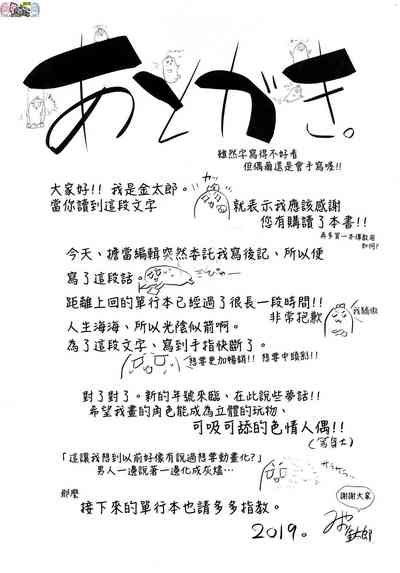 あとがき。
雖然字寫得不好看
但偶爾還是會手寫喔!!
大家好!! 我是金太郎。
當你讀到這段文字
カッ
就表示我應該感謝
您有購讀了本書!!
再多買一本傳教用
如何?
今天、擔當編輯突然委託我寫後記、所以便
寫了這段話。
ごぴゅー
距離上回的單行本已經過了很長一段時間!!
非常抱歉
我驕傲
人生海海、所以光陰似箭啊。
為了這段文字、寫到手指快斷了。
想要更加暢銷!! 想要中頭彩!!
對了對了。新的年號來臨、在此說些夢話!!
希望我畫的角色能成為立體的玩物、
可吸可舔的色情人偶!!
(寫自工)
「這讓我想到以前好像有說過想要動畫化?」
男人一邊說著一邊化成灰燼…
サラサラ
那麼
接下來的單行本也請多多指教。
謝謝大家
2019。
みや金太郎